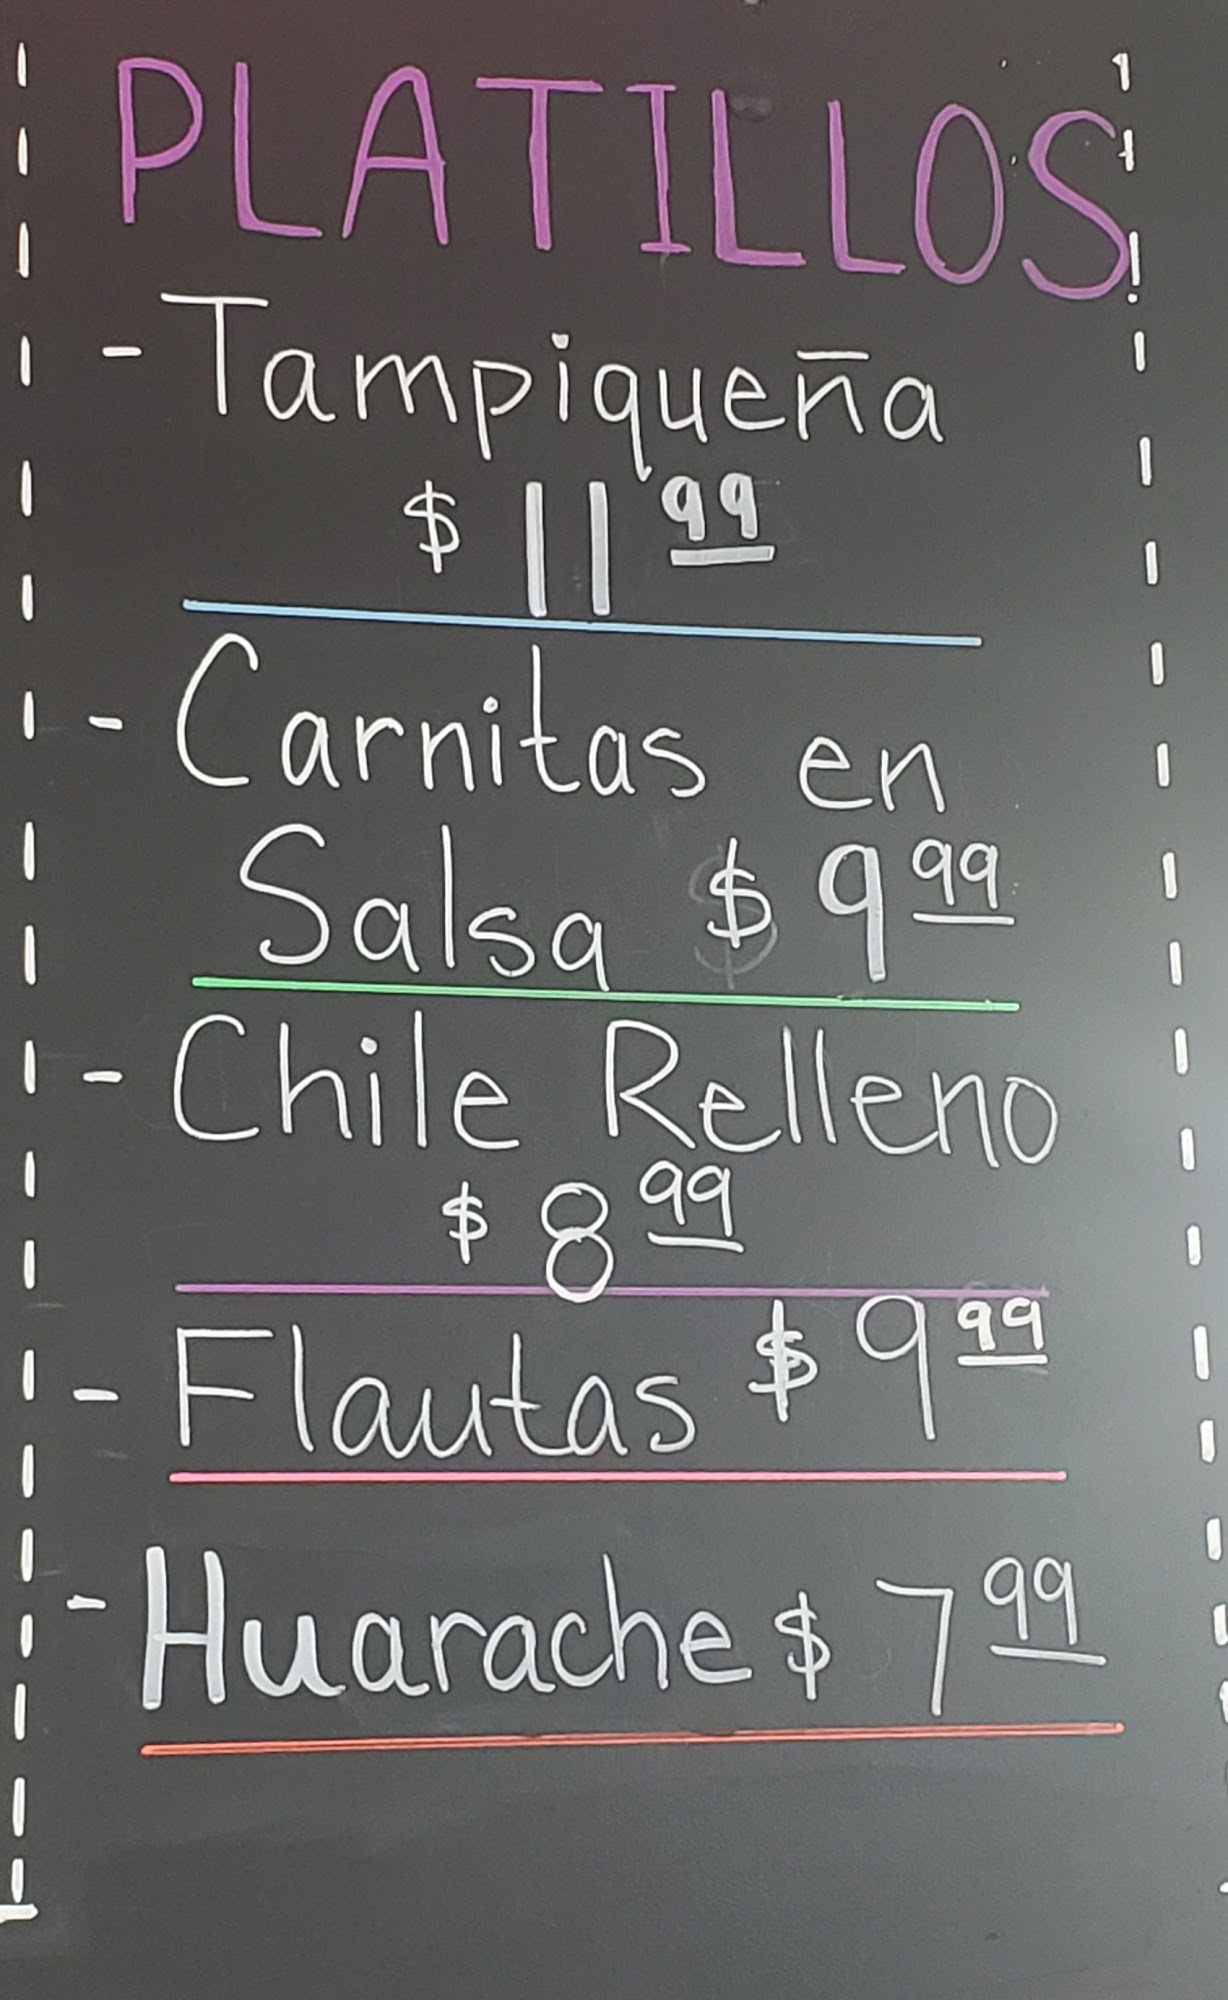 PLATILLOS
- Tampiqueña
$ 11 99
- Carnitas en
Salsa $ 9 99
- Chile Relleno
$ 8 99
- Flautas $ 9 99
- Huarache $ 7 99